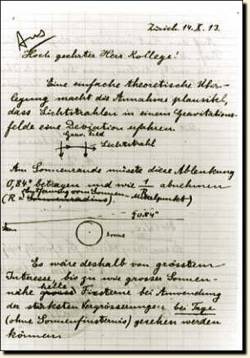 Zürich. 14. X. 13.
Hoch geehrter Herr Kollege!
Eine einfache theoretische Über-
legung macht die Annahme plausibel,
dass Lichtstrahlen in einem Gravitations-
felde eine Deviation erfahren.
Grav. Feld
Lichtstrahl
Am Sonnenrande müsste diese Ablenkung
0,84" betragen und wie 1/R abnehmen
(R =
0.84"
Sonne
Es wäre deshalb von grösstem
Interesse, bis zu wie grosser Sonnen-
nähe helle Fixsterne bei Anwendung
der stärksten Vergrösserungen bei Tage
(ohne Sonnenfinsternis) gesehen werden
können.